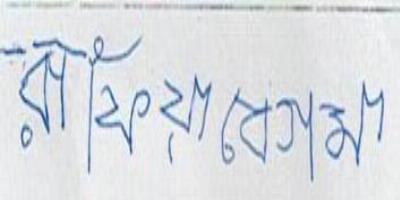 রাফিয়া বেগম